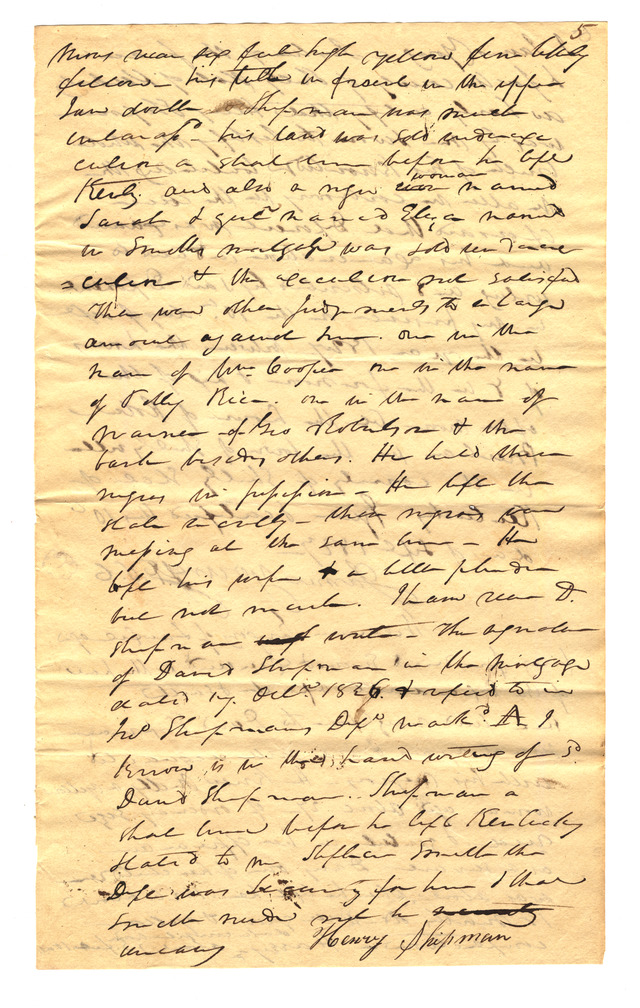 5
near six feet high yellow fine likely
fellow – his teeth in front in the upper
Jaw double – Shipman was much
embarassd – his land was sold under exe
cution a short time before he left
Kenty. and also a negro woman named
Sarah & girl named Eliza named
in Smiths mortgage was sold under exe
=cution & the execution not satisfied
There were other Judgements to a large
amount against him. one in the
name of Wm Cooper one in the name
of Rice. one in the name of
Warner of Geo Robertson & the
bank besides others. He held these
negros in possession – He left the
State secretly – these negroes were
missing at the same time – He
left his wife & a little plunder
but not much. I have seen D.
Shipman write – The signature
of David Shipman in the mortgage
dated 17 Octr. 1826. & referd to in
Jno Shipmans Depo markd A I
know is in the hand writing of sd.
David Shipman. Shipman a
short time before he left Kentucky
stated to me Stephen Smith the
Deft was Security for him & that
Smith need not be
uneasy Henry Shipman